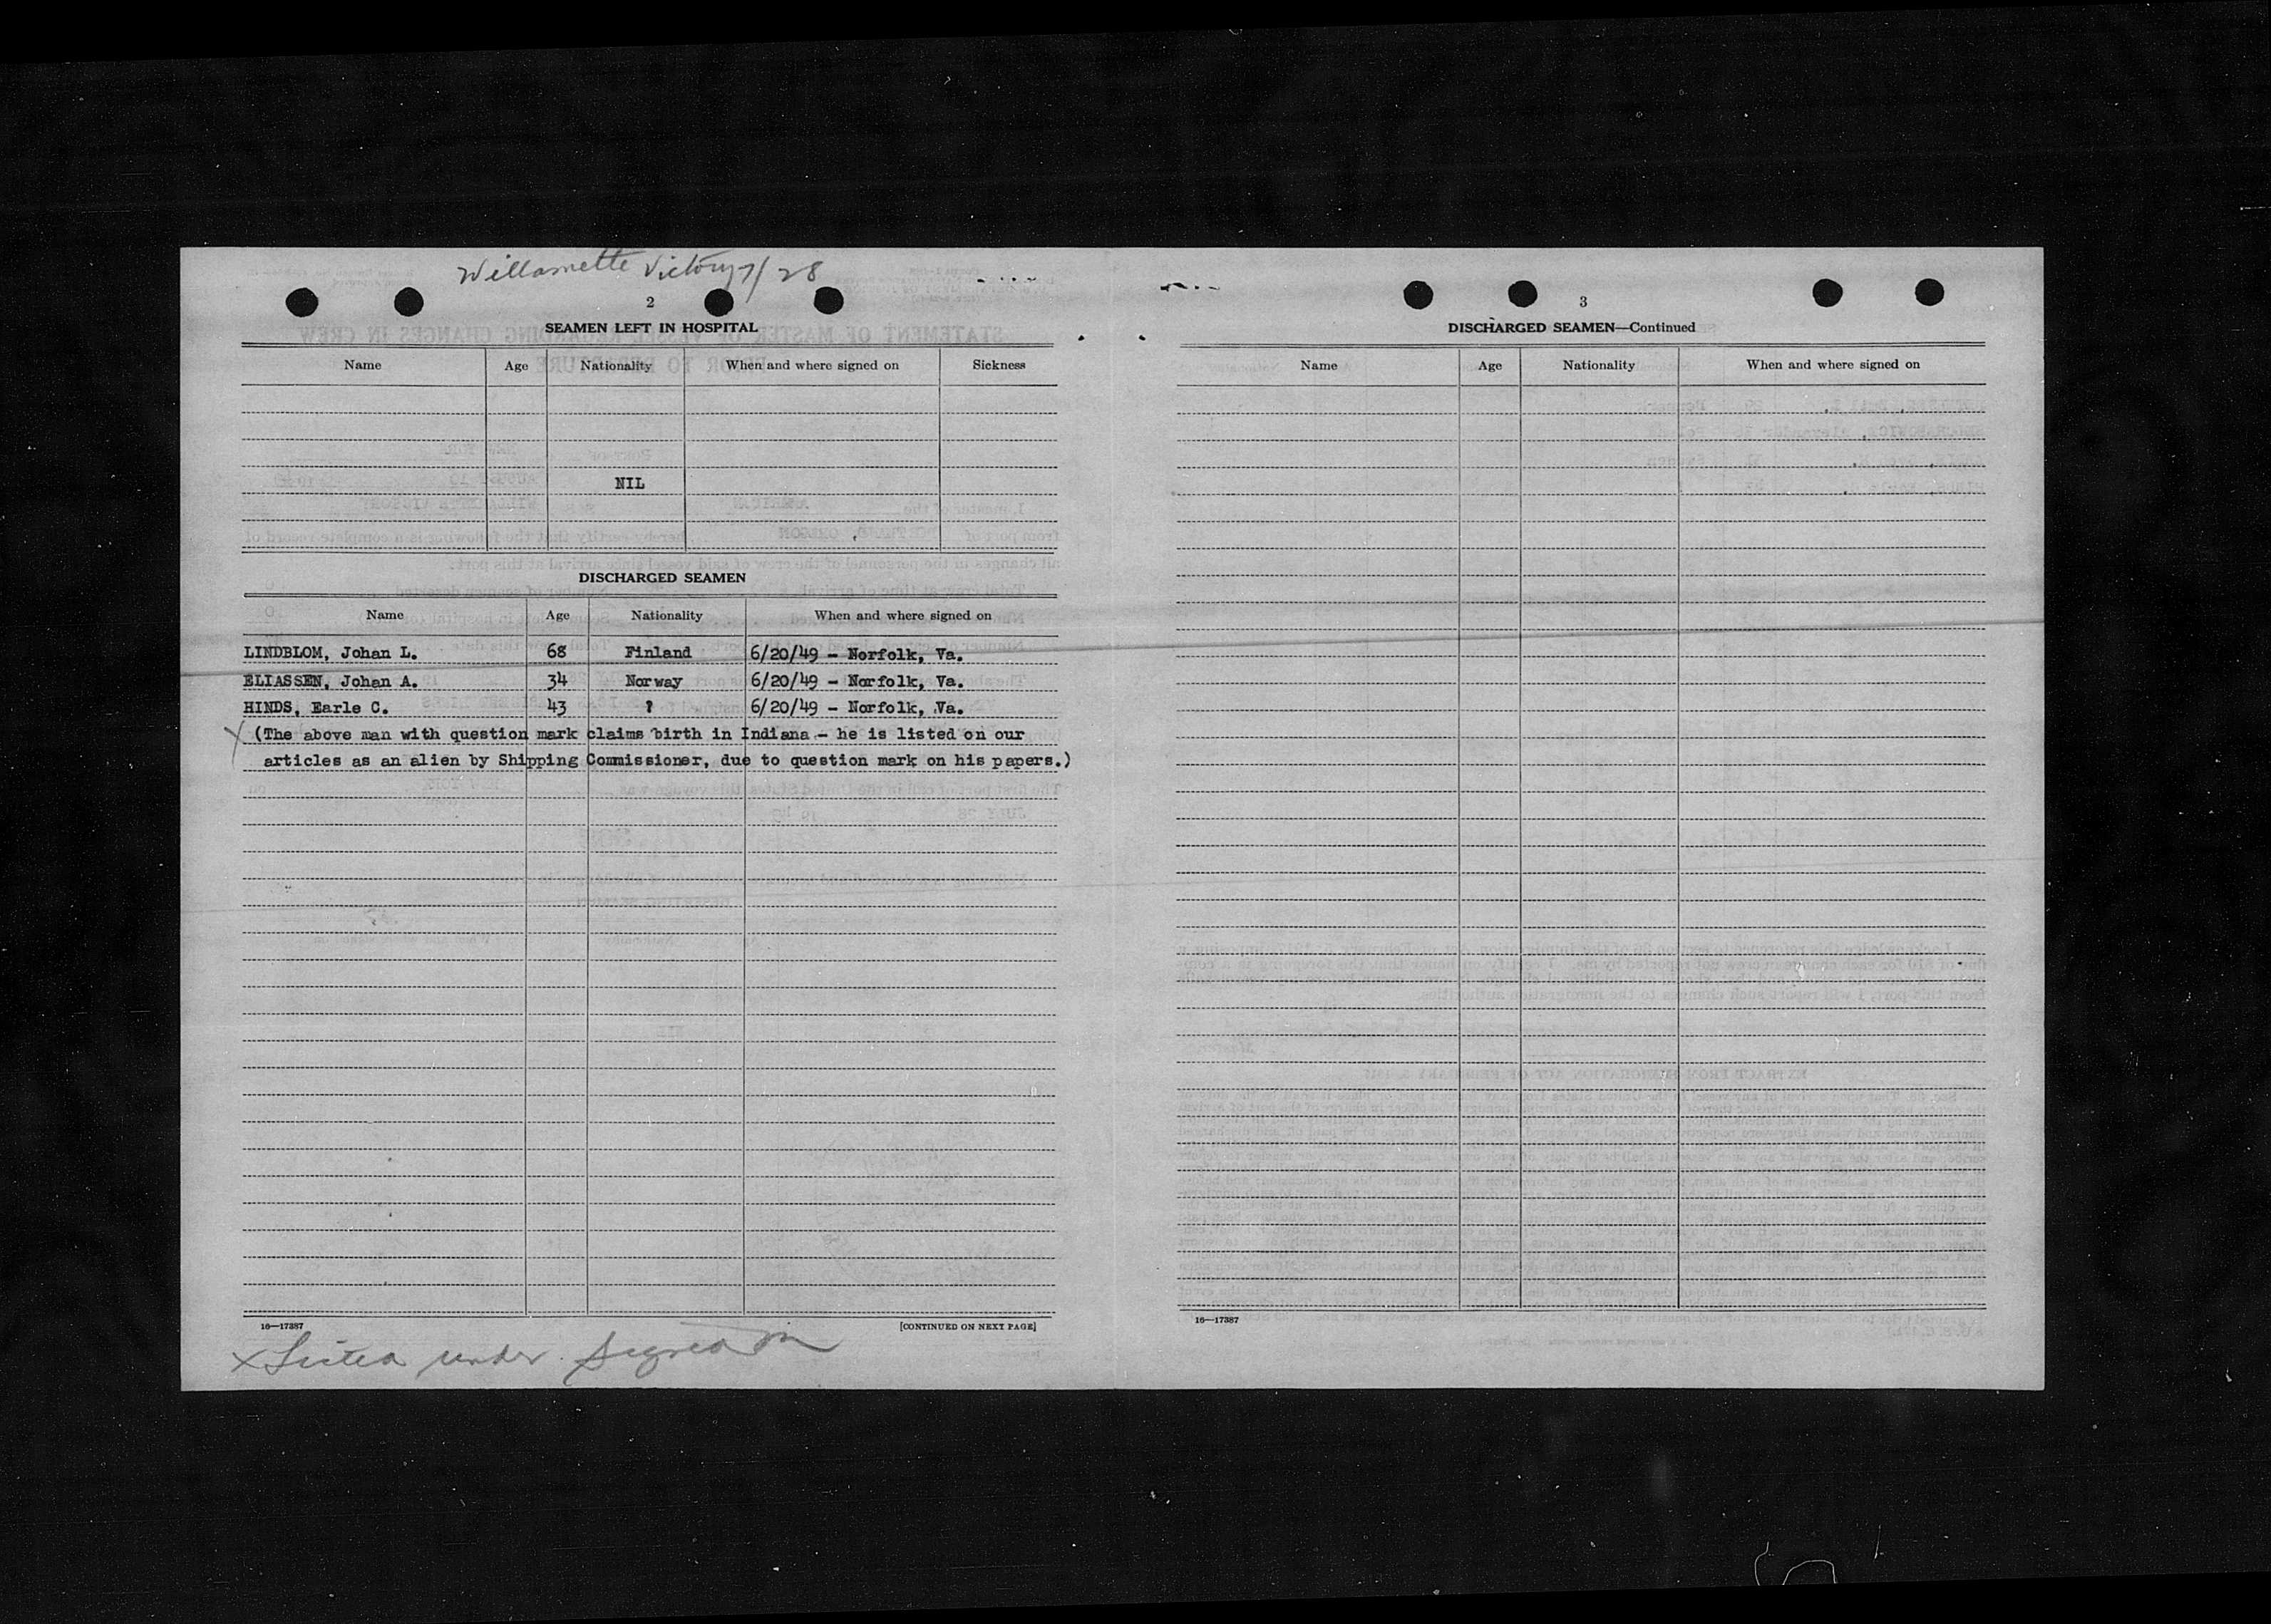 Willamette Victory 7/28
2
SEAMEN LEFT IN HOSPITAL
Name Age Nationality When and where signed on Sickness
NIL
DISCHARGED SEAMEN
Name Age Nationality When and where signed on
LINDBLOM, Johan L. 68 Finland 6/20/49 - Norfolk, Va.
ELIASSEN, Johan A. 34 Norway 6/20/49 - Norfolk, Va.
HINDS, Earle C. 43 ? 6/20/49 - Norfolk, Va.
(The above man with question mark claims birth in Indiana - he is listed on our
articles as an alien by Shipping Commissioner, due to question mark on his papers.)
16—17387 [CONTINUED ON NEXT PAGE]
x Listed under Signed on
3
DISCHARGED SEAMEN—Continued
Name Age Nationality When and where signed on
16—17387